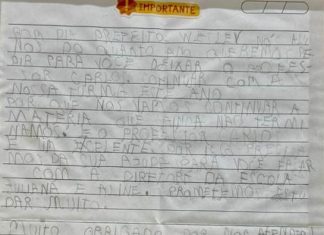 IMPORTANTE
BOM DIA PREFEITO WE LEV NÓS ALU
NOS DO QUARTO ANO QUEREMOS PE
DIR PARA VOCÊ DEIXAR O PROFES
SOR CARLOS CONTINUAR COM A
NOSSA TURMA ESTE ANO
POR QUE NOS VAMOS CONTINUAR A
MATERIA QUE AINDA NÃO TERMI
NAMOS. E O PROFESSOR
É EXCELENTE POR ISSO PRECISA
MOS DA SUA AJUDA PARA VOCÊ FALAR
COM A DIRETORA DA ESCOLA
JULIANA E ALINE. PROMETEMOS ESTU
DAR MUITO.
MUITO OBRIGADO POR NOS ATENDER!